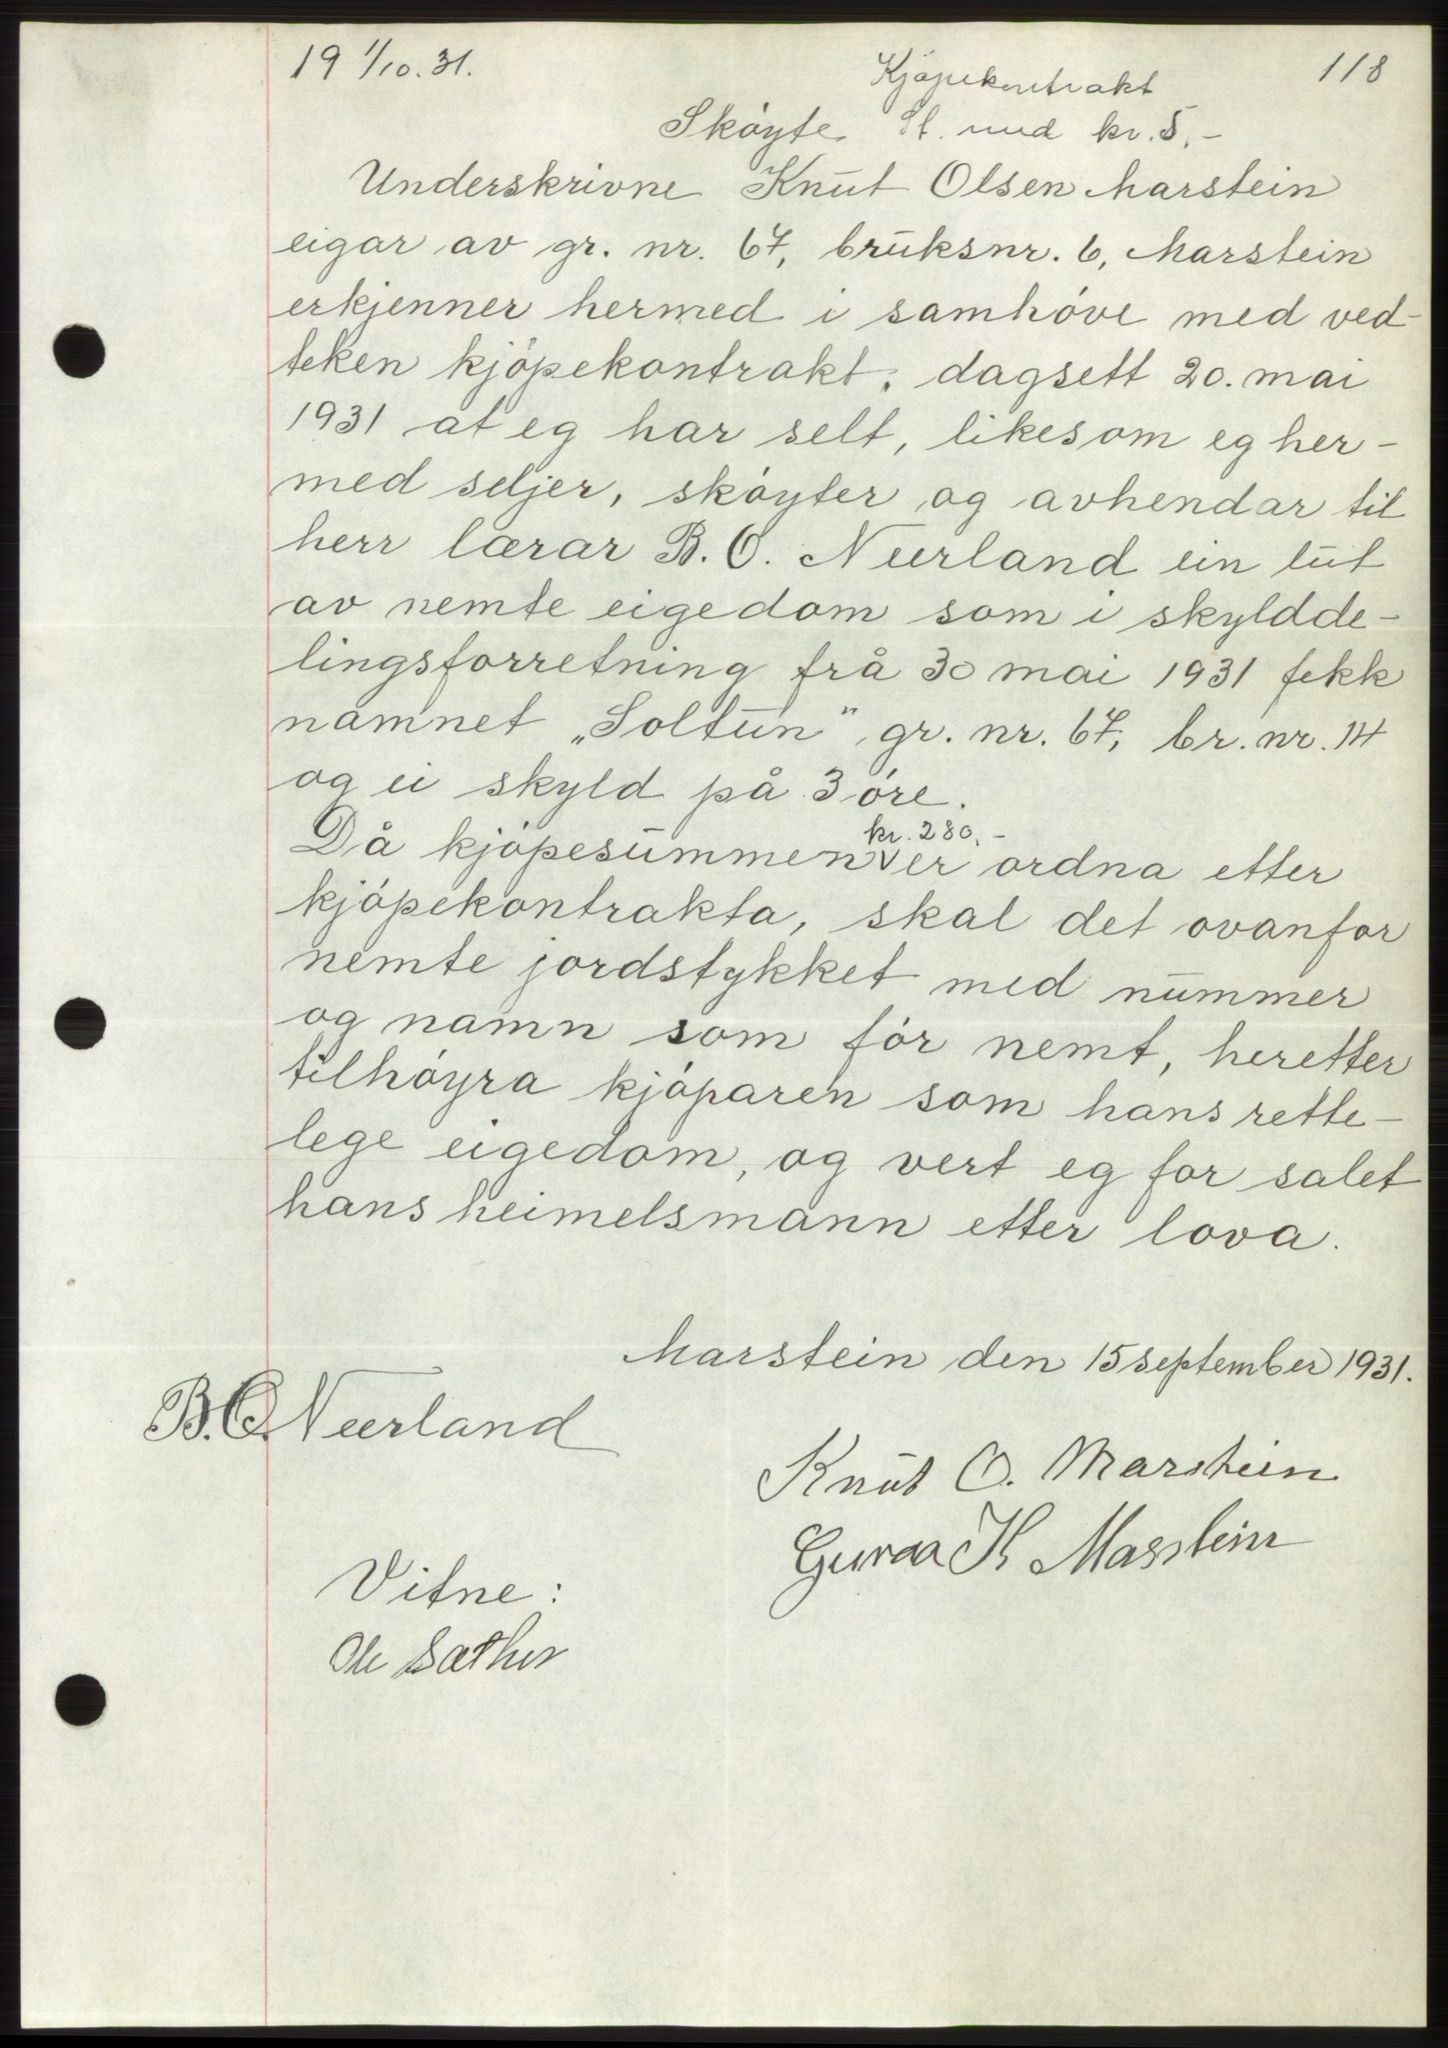 19 1/10. 31.
118
Kjöpekontrakt
Sköyte St. med kr. 5.-
Underskrivne Knut Olsen Marstein
eigar av gr. nr. 67, bruksnr. 6, Marstein
erkjenner hermed i samhöve med ved-
teken kjöpekontrakt, dagsett 20. mai
1931 at eg har selt, likesom eg her-
med seljer, sköyter og avhendar til
herr lærar B. O. Neerland ein lut
av nemte eigedom som i skyldde-
lingsforretning frå 30 mai 1931 fekk
namnet „Soltun" gr. nr. 67, br. nr. 14
og ei skyld på 3 öre.
kr. 280.-
Då kjöpesummen er ordna etter
kjöpekontrakta, skal det ovanfor
nemte jordstykket med nummer
og namn som för nemt, heretter
tilhöyra kjöparen som hans rette-
lege eigedom, og vert eg for salet
hans heimelsmann etter lova.
Marstein den 15 september 1931.
B. O. Neerland
Knut O. Marstein
Guraa K Marstein
Vitne:
Ole Sæther